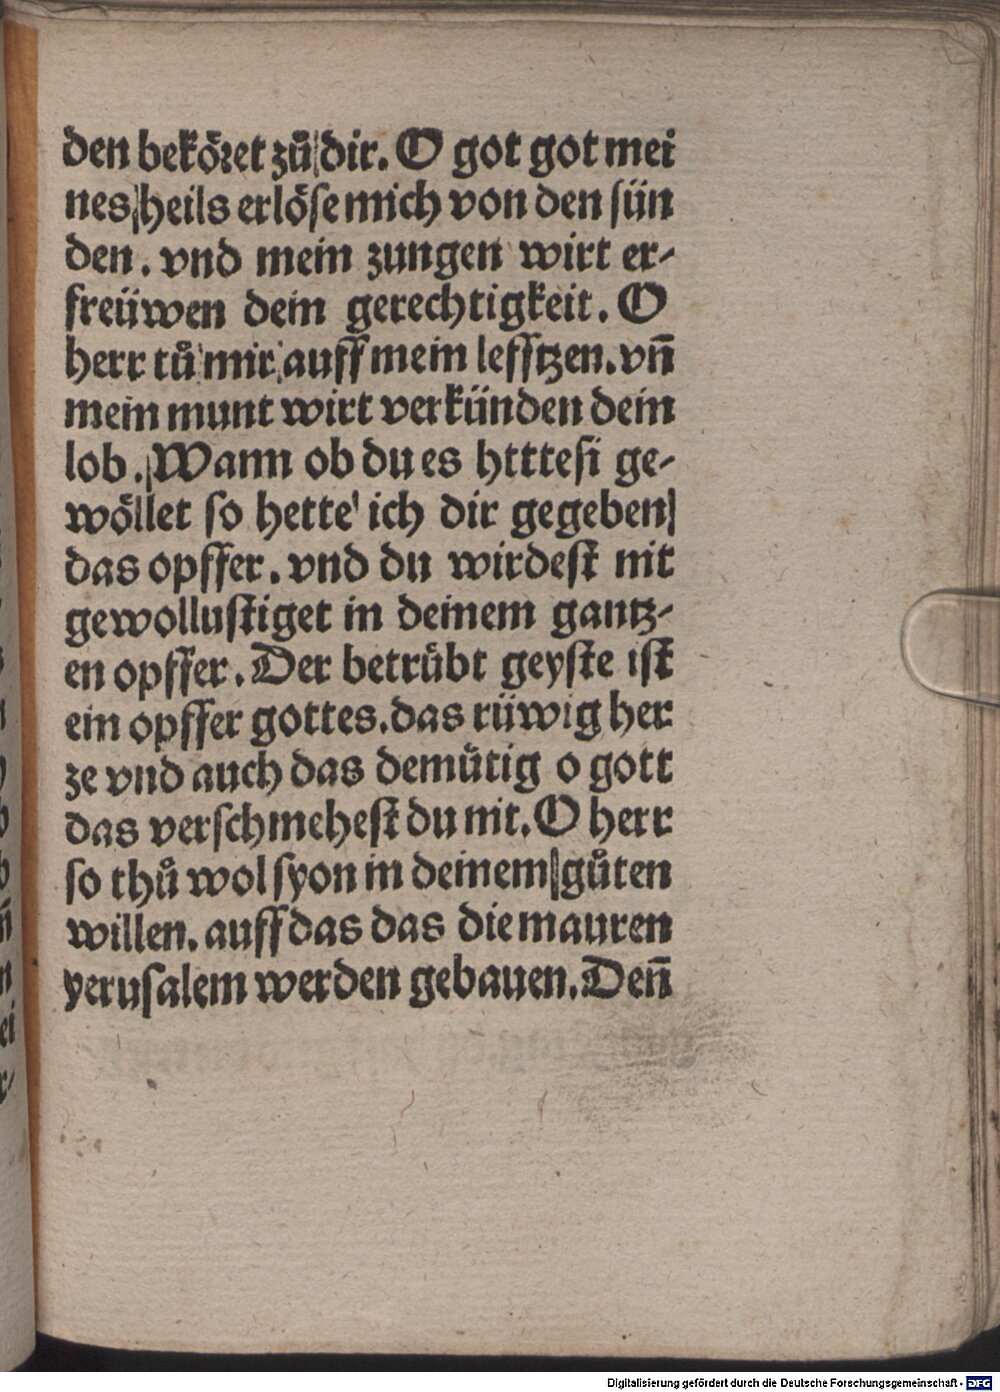 den bekoͤꝛet zuͦ dir. O got got mei
nes heils erloͤse mich von den sün
den. vnd mein zungen wirt er-
freüwen dein gerechtigkeit. O
herr tuͦ mir auff mein lefftzen. vn̄
mein munt wirt verkünden dein
lob. Wann ob du es htttesi ge-
woͤllet so hette ich dir gegeben
das opffer. vnd du wirdest nit
gewollustiget in deinem gantz-
en opffer. Der betruͤbt geyste ist
ein opffer gottes. das rüwig her
ze vnd auch das demuͤtig o gott
das verschmehest du nit. O herr
so thuͦ wol syon in deinem guͦten
willen. auff das das die mauren
yerusalem werden gebauen. Den̄
Digitalisierung gefördert durch die Deutsche Forschungsgemeinschaft - DFG